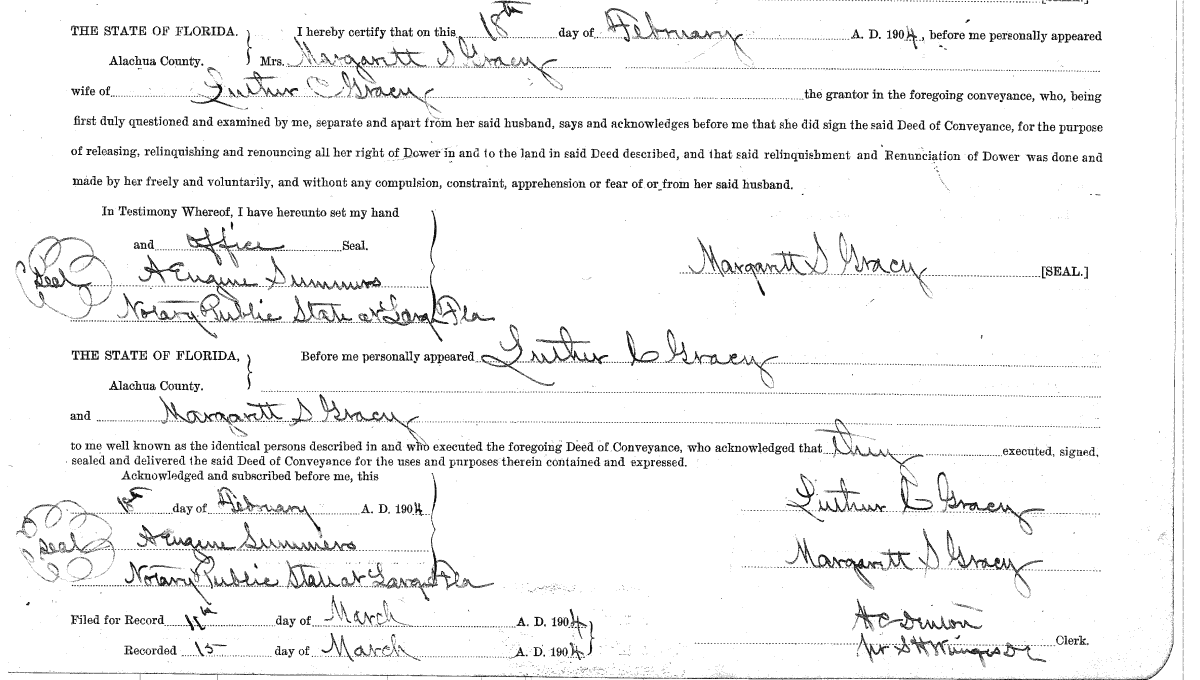 [SEAL.]
THE STATE OF FLORIDA. I hereby certify that on this 18th day of February A. D. 1904, before me personally appeared
Alachua County. Mrs. Margaritt S Gracy
wife of Luther C Gracy the grantor in the foregoing conveyance, who, being
first duly questioned and examined by me, separate and apart from her said husband, says and acknowledges before me that she did sign the said Deed of Conveyance, for the purpose
of releasing, relinquishing and renouncing all her right of Dower in and to the land in said Deed described, and that said relinquishment and Renunciation of Dower was done and
made by her freely and voluntarily, and without any compulsion, constraint, apprehension or fear of or from her said husband.
In Testimony Whereof, I have hereunto set my hand
and office Seal.
Margaritt S Gracy [SEAL.]
Seal A Eugene Summers
Notary Public State at Large Fla
THE STATE OF FLORIDA, Before me personally appeared Luther C Gracy
Alachua County.
and Margaritt S Gracy
to me well known as the identical persons described in and who executed the foregoing Deed of Conveyance, who acknowledged that they executed, signed,
sealed and delivered the said Deed of Conveyance for the uses and purposes therein contained and expressed.
Acknowledged and subscribed before me, this
18th day of February A. D. 1904
Luther C Gracy
Seal A Eugene Summers
Margaritt S Gracy
Notary Public State at Large Fla
Filed for Record 11th day of March A. D. 1904
H C Denton
Clerk.
Recorded 15 day of March A. D. 1904
per S H Wienges DC